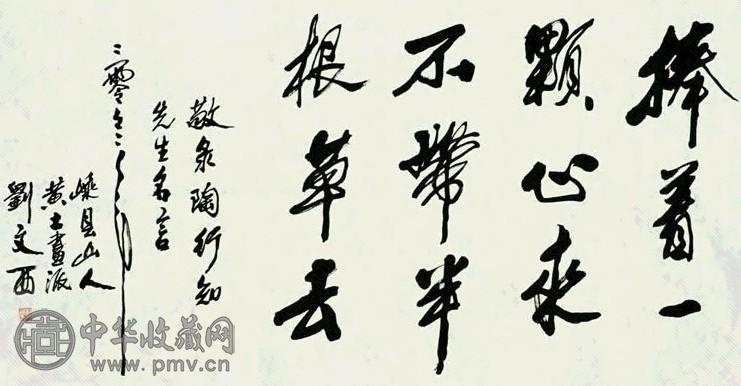 捧着一
顆心來
不帶半
根草去
敬录陶行知
先生名言
二零
嵊县山人
黄土畫派
劉文西
中华收藏网
www.pmv.cn